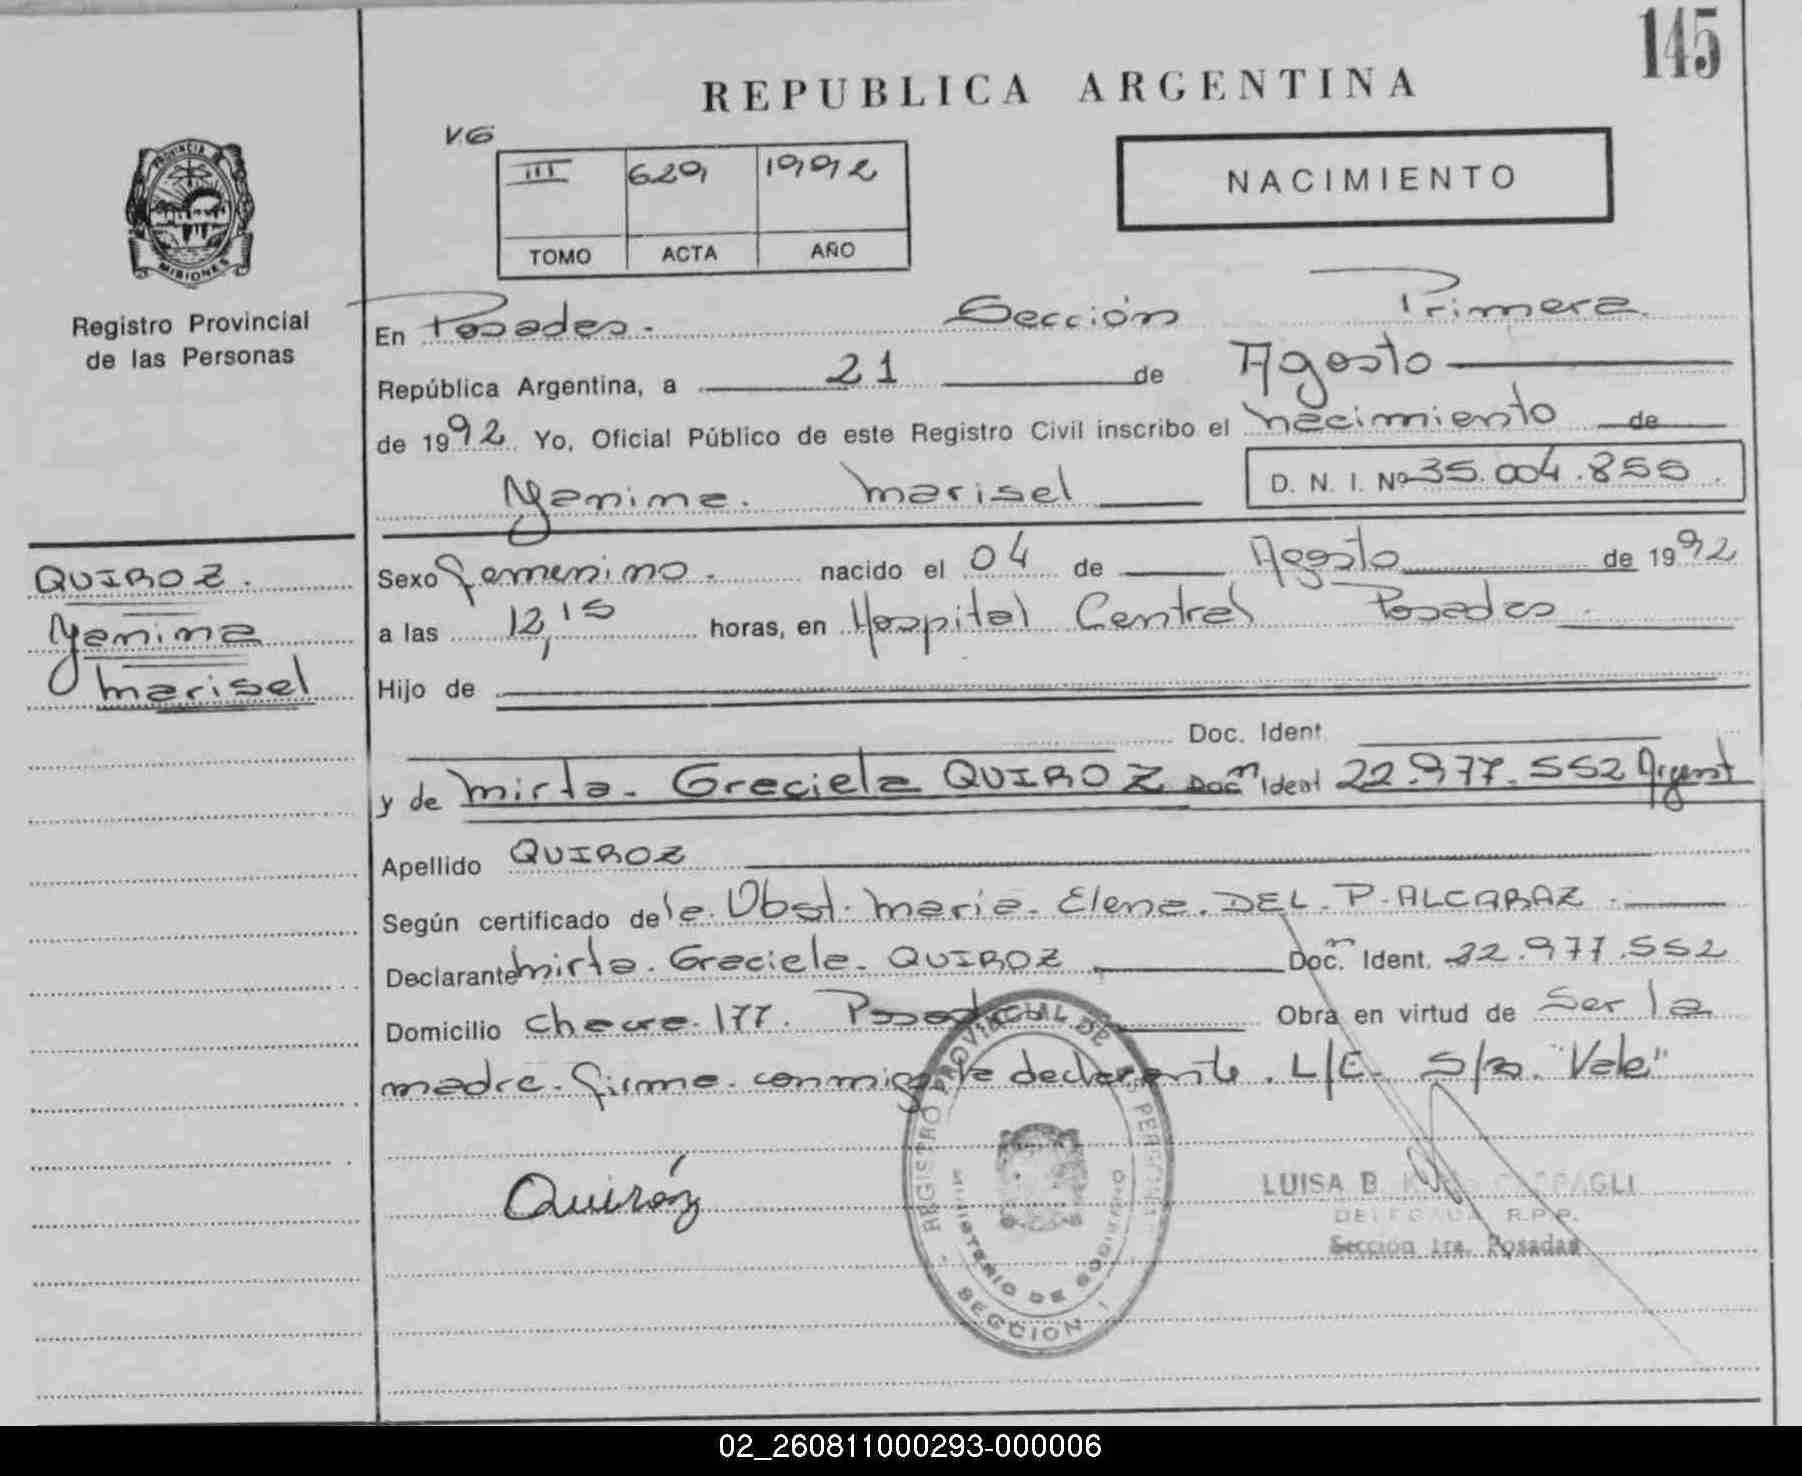 145
REPUBLICA ARGENTINA
V.G
III 629 1992
TOMO ACTA AÑO
NACIMIENTO
PROVINCIA DE
MISIONES
Registro Provincial
de las Personas
En Posadas. Sección Primera
República Argentina, a 21 de Agosto
de 1992 Yo, Oficial Público de este Registro Civil inscribo el nacimiento de
Yanina. Marisel D. N. I. Nº 35.004.855.
QUIROZ.
Yanina
Marisel
Sexo femenino. nacido el 04 de Agosto de 1992
a las 12,15 horas, en Hospital Central Posadas.
Hijo de
Doc. Ident.
y de Mirta. Graciela QUIROZ Doc.ⁿ Ident 22.977.552 Argent
Apellido QUIROZ
Según certificado de la. Obst. Maria. Elena. DEL. P. ALCARAZ.
Declarante Mirta. Graciela. QUIROZ Doc.ⁿ Ident. 22.977.552
Domicilio 177. Posadas Obra en virtud de ser la
madre. firma. conmigo la declarante. L/E. S/R. "Vale"
Quiróz
REGISTRO PROVINCIAL DE LAS PERSONAS
MINISTERIO DE GOBIERNO
SECCION 1
LUISA B.
DELEGADA R.P.P.
Sección 1ra. Posadas
02_260811000293-000006